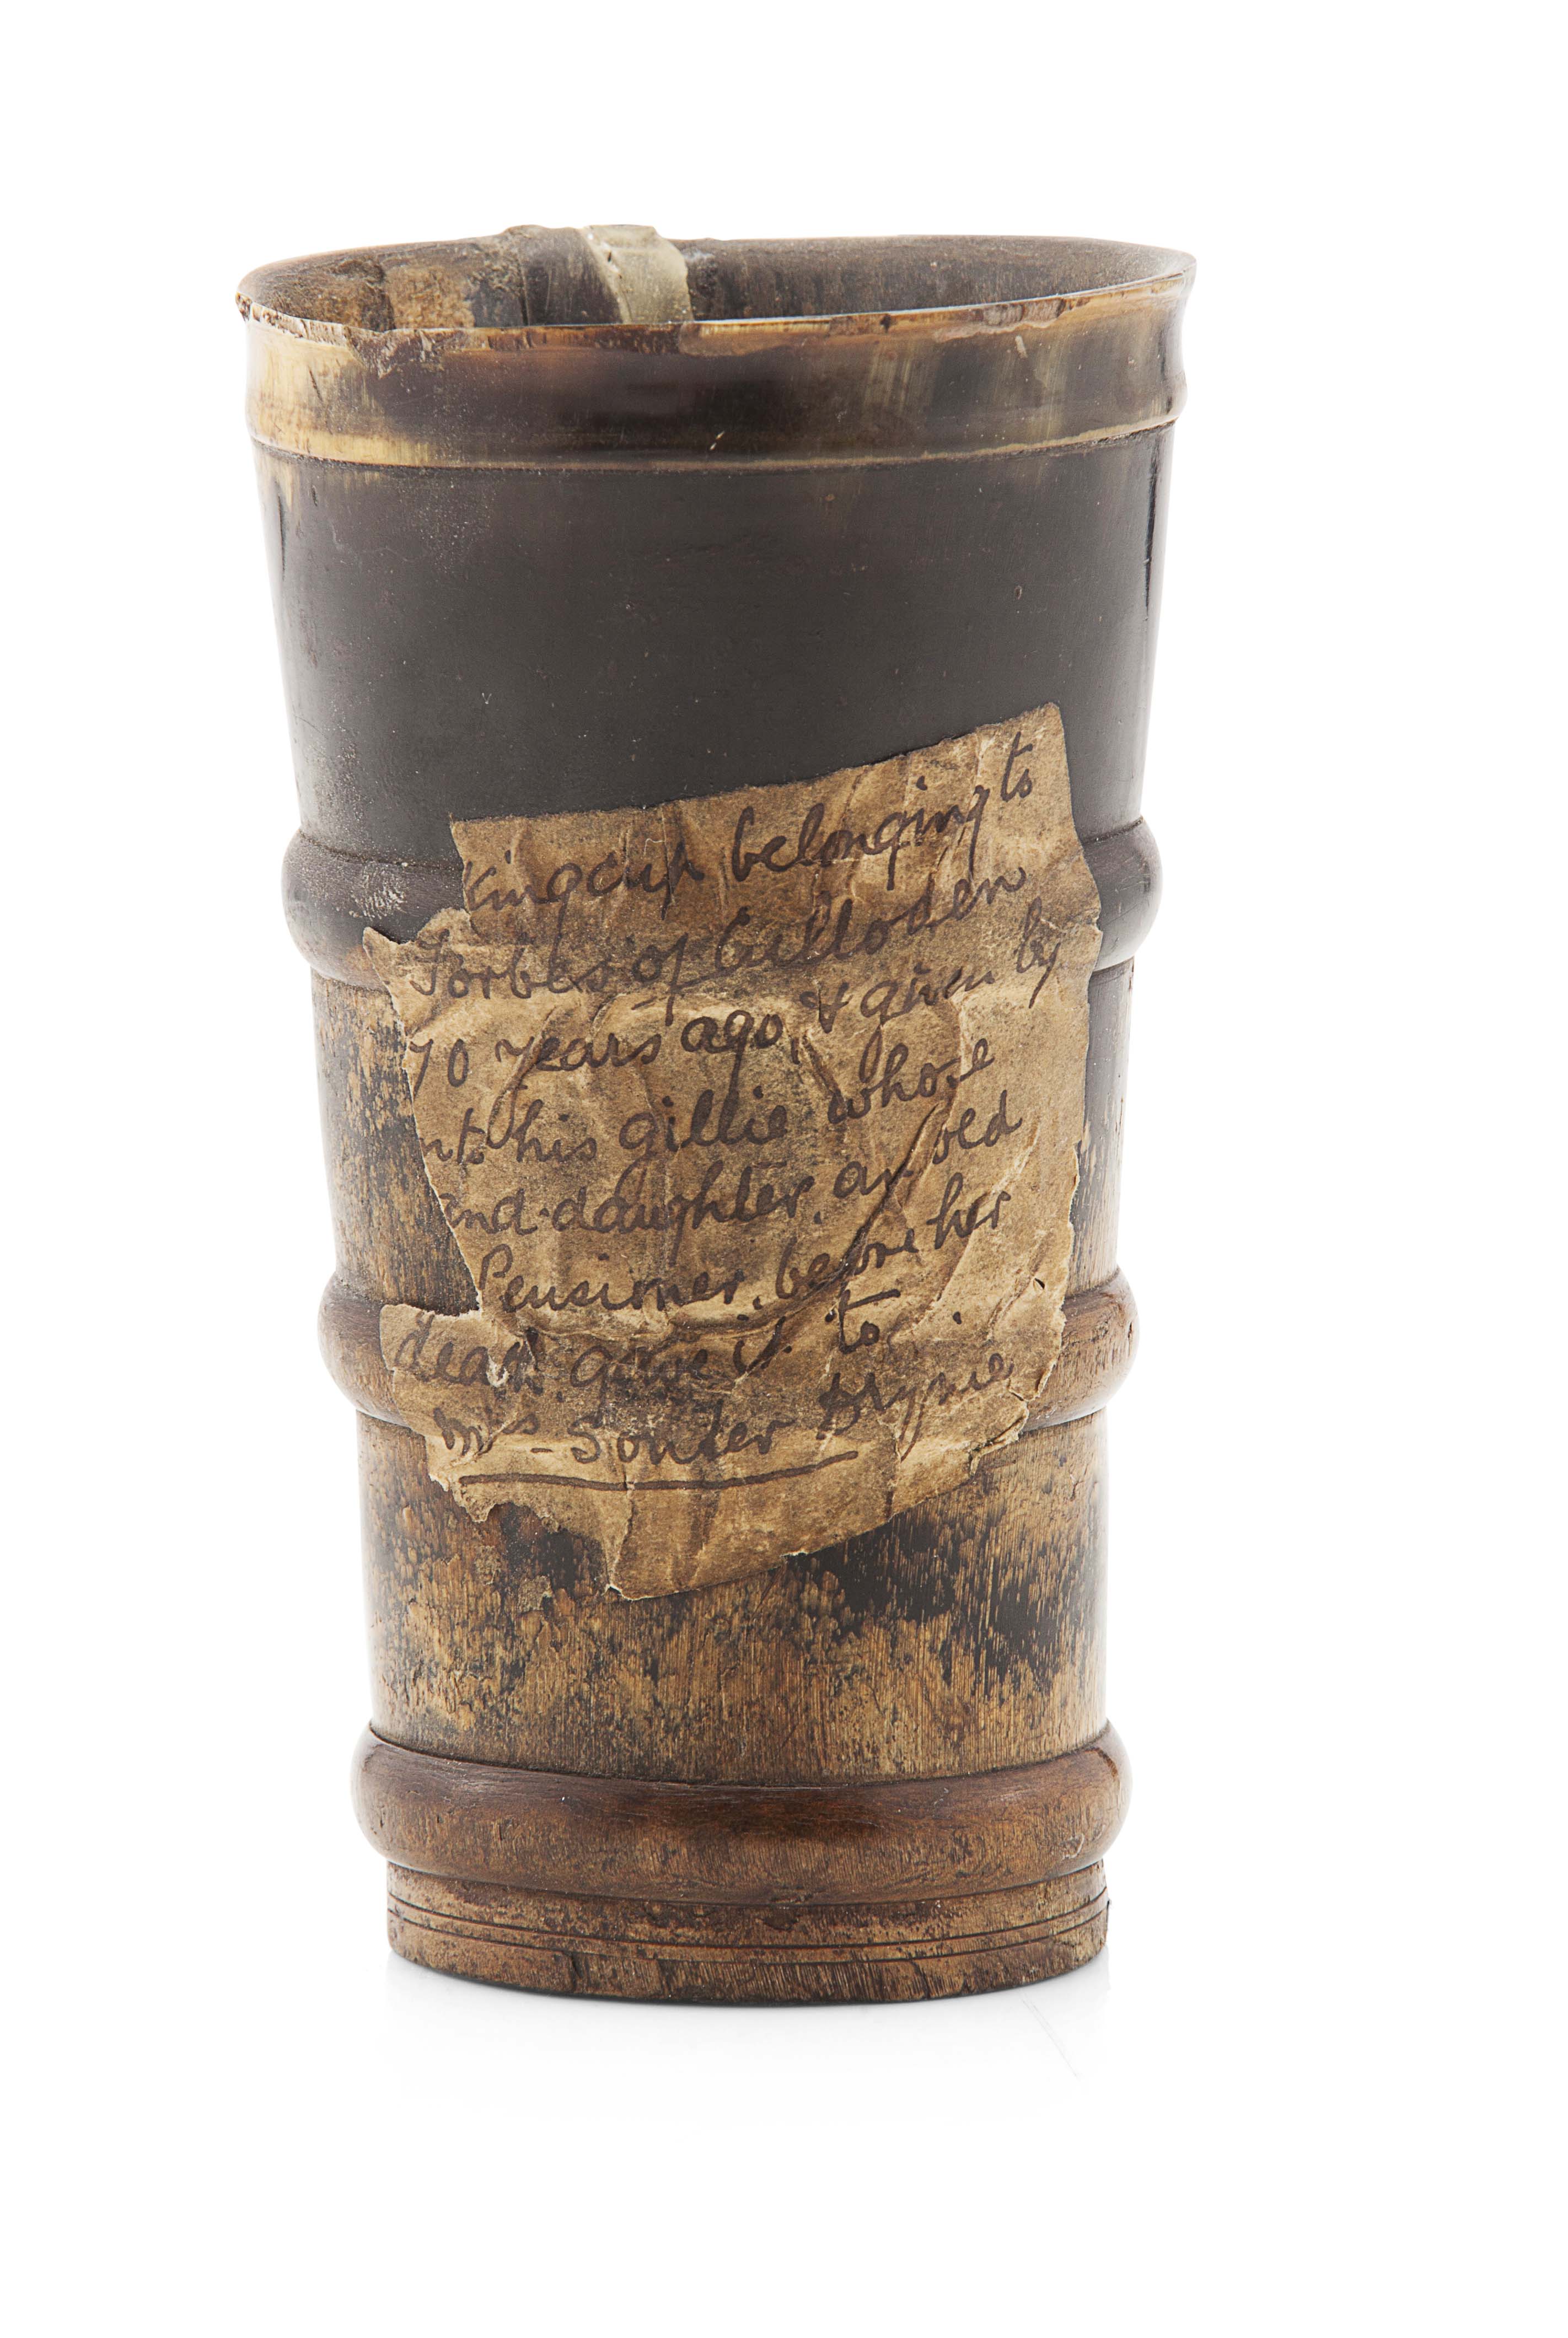 king cup belonging to
Forbes of Culloden
70 years ago, & given by
nt his gillie whose
and-daughter, an old
Pensioner, before her
death gave it to
Mrs - Souter